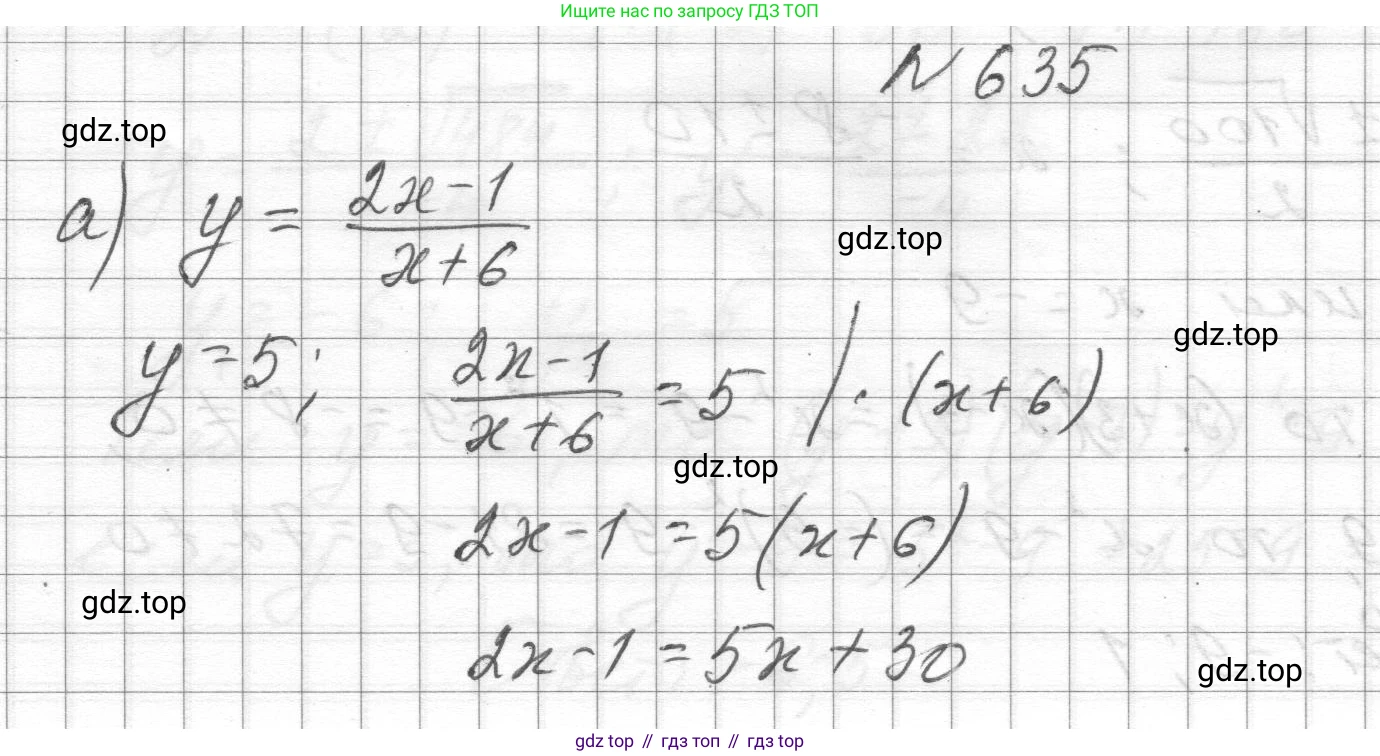 Ищите нас по запросу ГДЗ ТОП
N 635
gdz.top
а) y = (2x-1)/(x+6)
gdz.top
gdz.top
y = 5; (2x-1)/(x+6) = 5 | · (x+6)
gdz.top
2x-1 = 5(x+6)
gdz.top
2x-1 = 5x+30
gdz.top
gdz top // гдз топ // гдз top